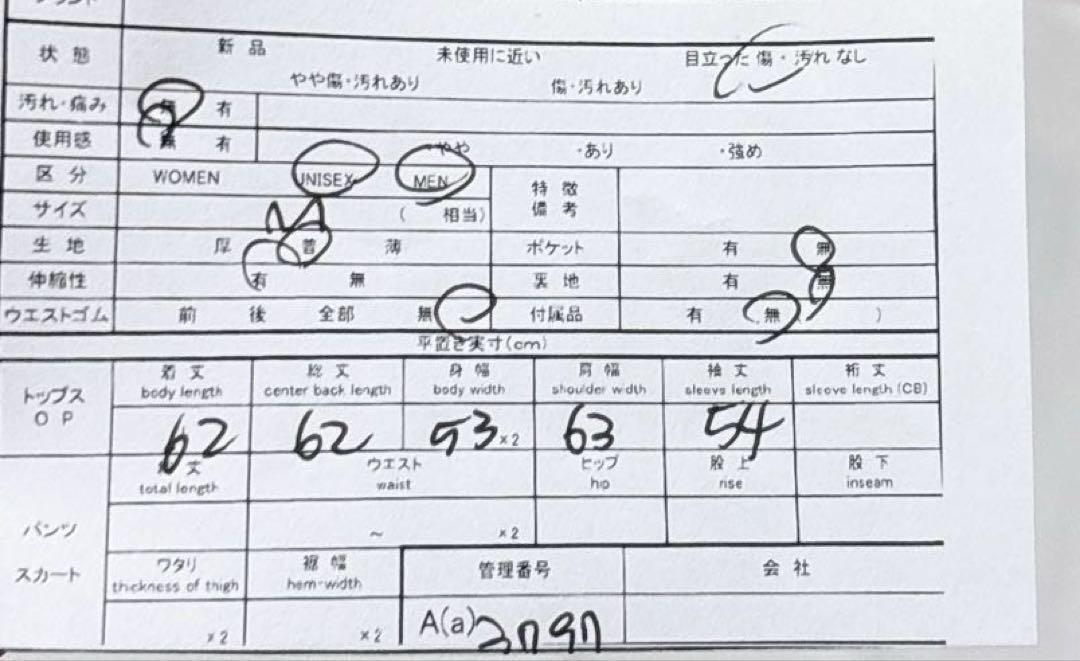 状態 新品 未使用に近い 目立った傷・汚れなし
やや傷・汚れあり 傷・汚れあり
汚れ・痛み 無 有
使用感 無 有 やや ・あり ・強め
区分 WOMEN UNISEX MEN 特徴
サイズ M ( 相当) 備考
生地 厚 普 薄 ポケット 有 無
伸縮性 有 無 裏地 有 無
ウエストゴム 前 後 全部 無 付属品 有 無( )
平置き実寸(cm)
着丈 総丈 身幅 肩幅 袖丈 裄丈
トップス body length center back length body width shoulder width sleeve length sleeve length (CB)
OP 62 62 53 ×2 63 54
丈 ウエスト ヒップ 股上 股下
total length waist hip rise inseam
パンツ ~ ×2
スカート ワタリ 裾幅 管理番号 会社
thickness of thigh hem-width
×2 ×2 A(a)